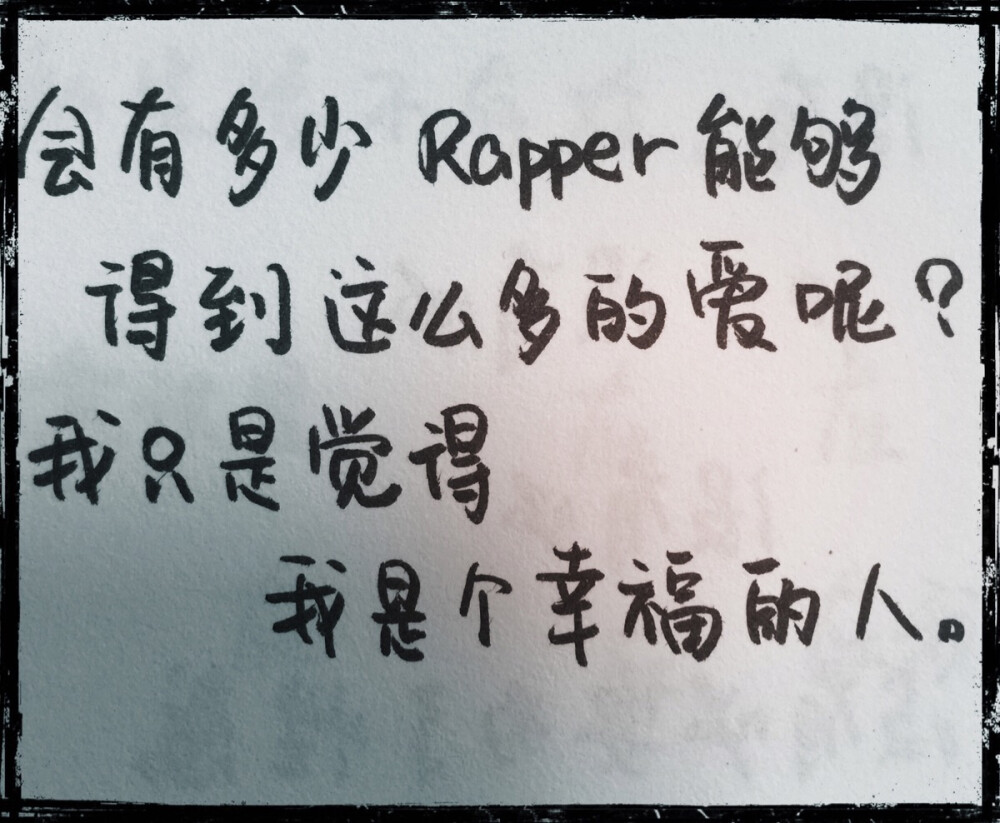 会有多少 Rapper 能够
得到这么多的爱呢?
我只是觉得
我是个幸福的人。